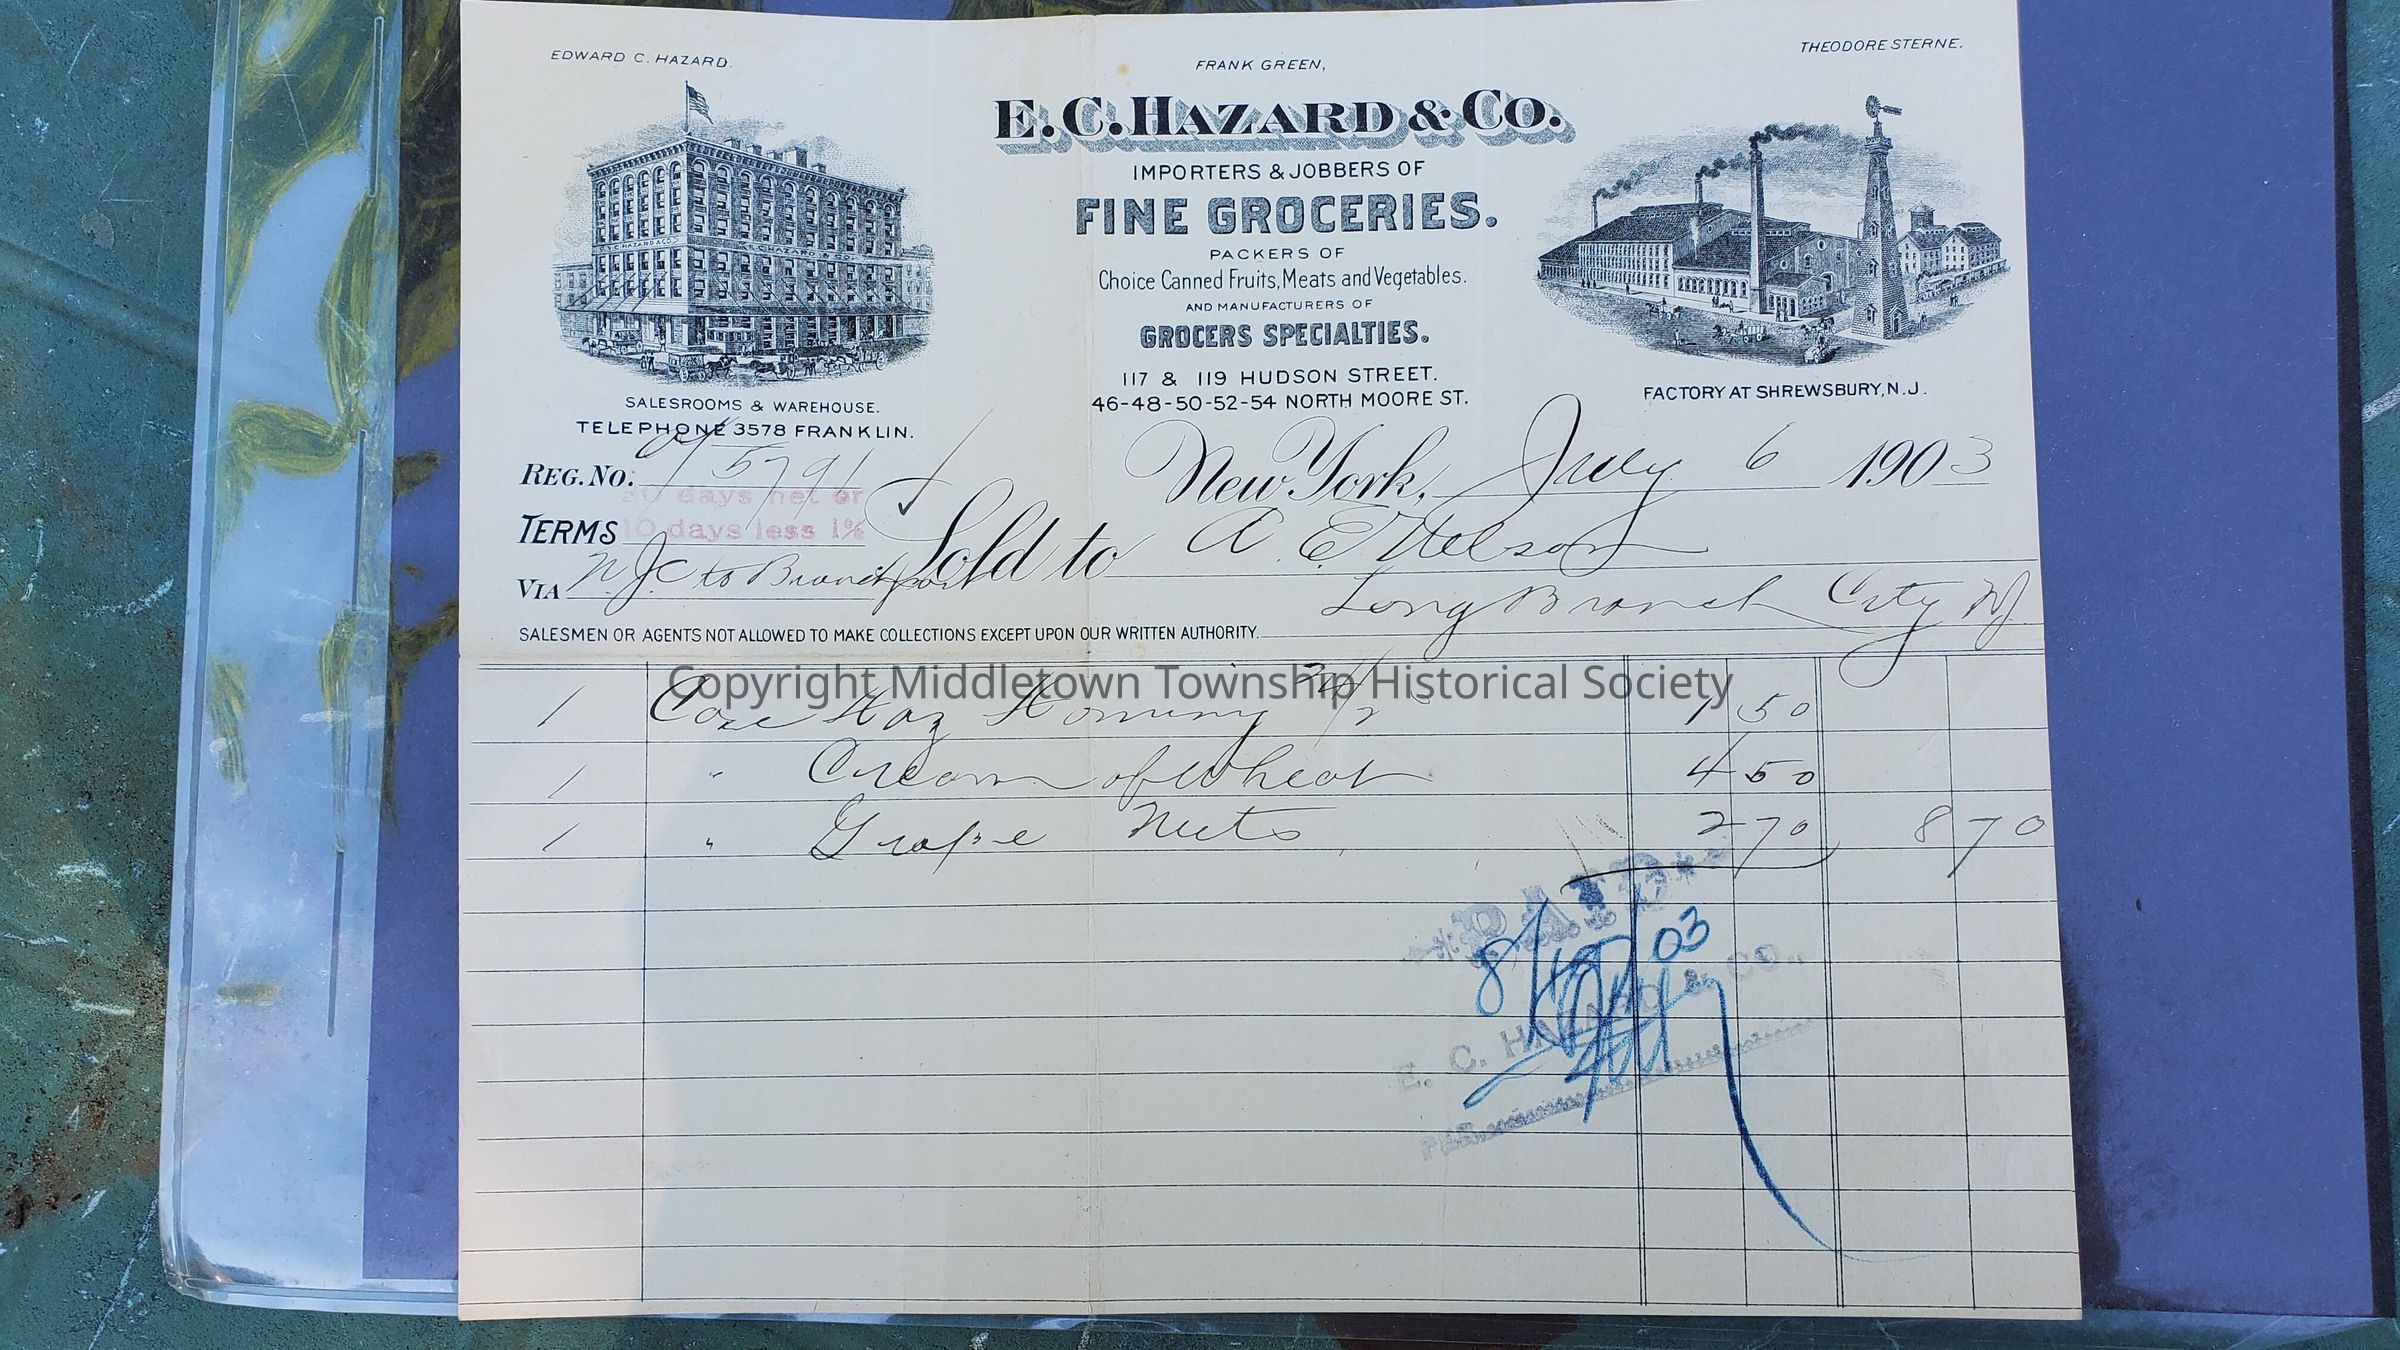 EDWARD C. HAZARD.
FRANK GREEN,
THEODORE STERNE.
E.C. HAZARD & CO.
IMPORTERS & JOBBERS OF
FINE GROCERIES.
PACKERS OF
Choice Canned Fruits, Meats and Vegetables.
AND MANUFACTURERS OF
GROCERS SPECIALTIES.
117 & 119 HUDSON STREET.
46-48-50-52-54 NORTH MOORE ST.
E.C. HAZARD & CO.
SALESROOMS & WAREHOUSE.
TELEPHONE 3578 FRANKLIN.
FACTORY AT SHREWSBURY, N.J.
New York, July 6 1903
REG. NO.
TERMS 30 days net or
10 days less 1%
Sold to A E Nelson
VIA N.J.C to Branchport
Long Branch City NJ
SALESMEN OR AGENTS NOT ALLOWED TO MAKE COLLECTIONS EXCEPT UPON OUR WRITTEN AUTHORITY.
Copyright Middletown Township Historical Society
1 Case Haz Hominy 1 50
1 " Cream of Wheat 4 50
1 " Grape Nuts 2 70 8 70
PAID
03
E. C. HAZARD & CO.,
PER